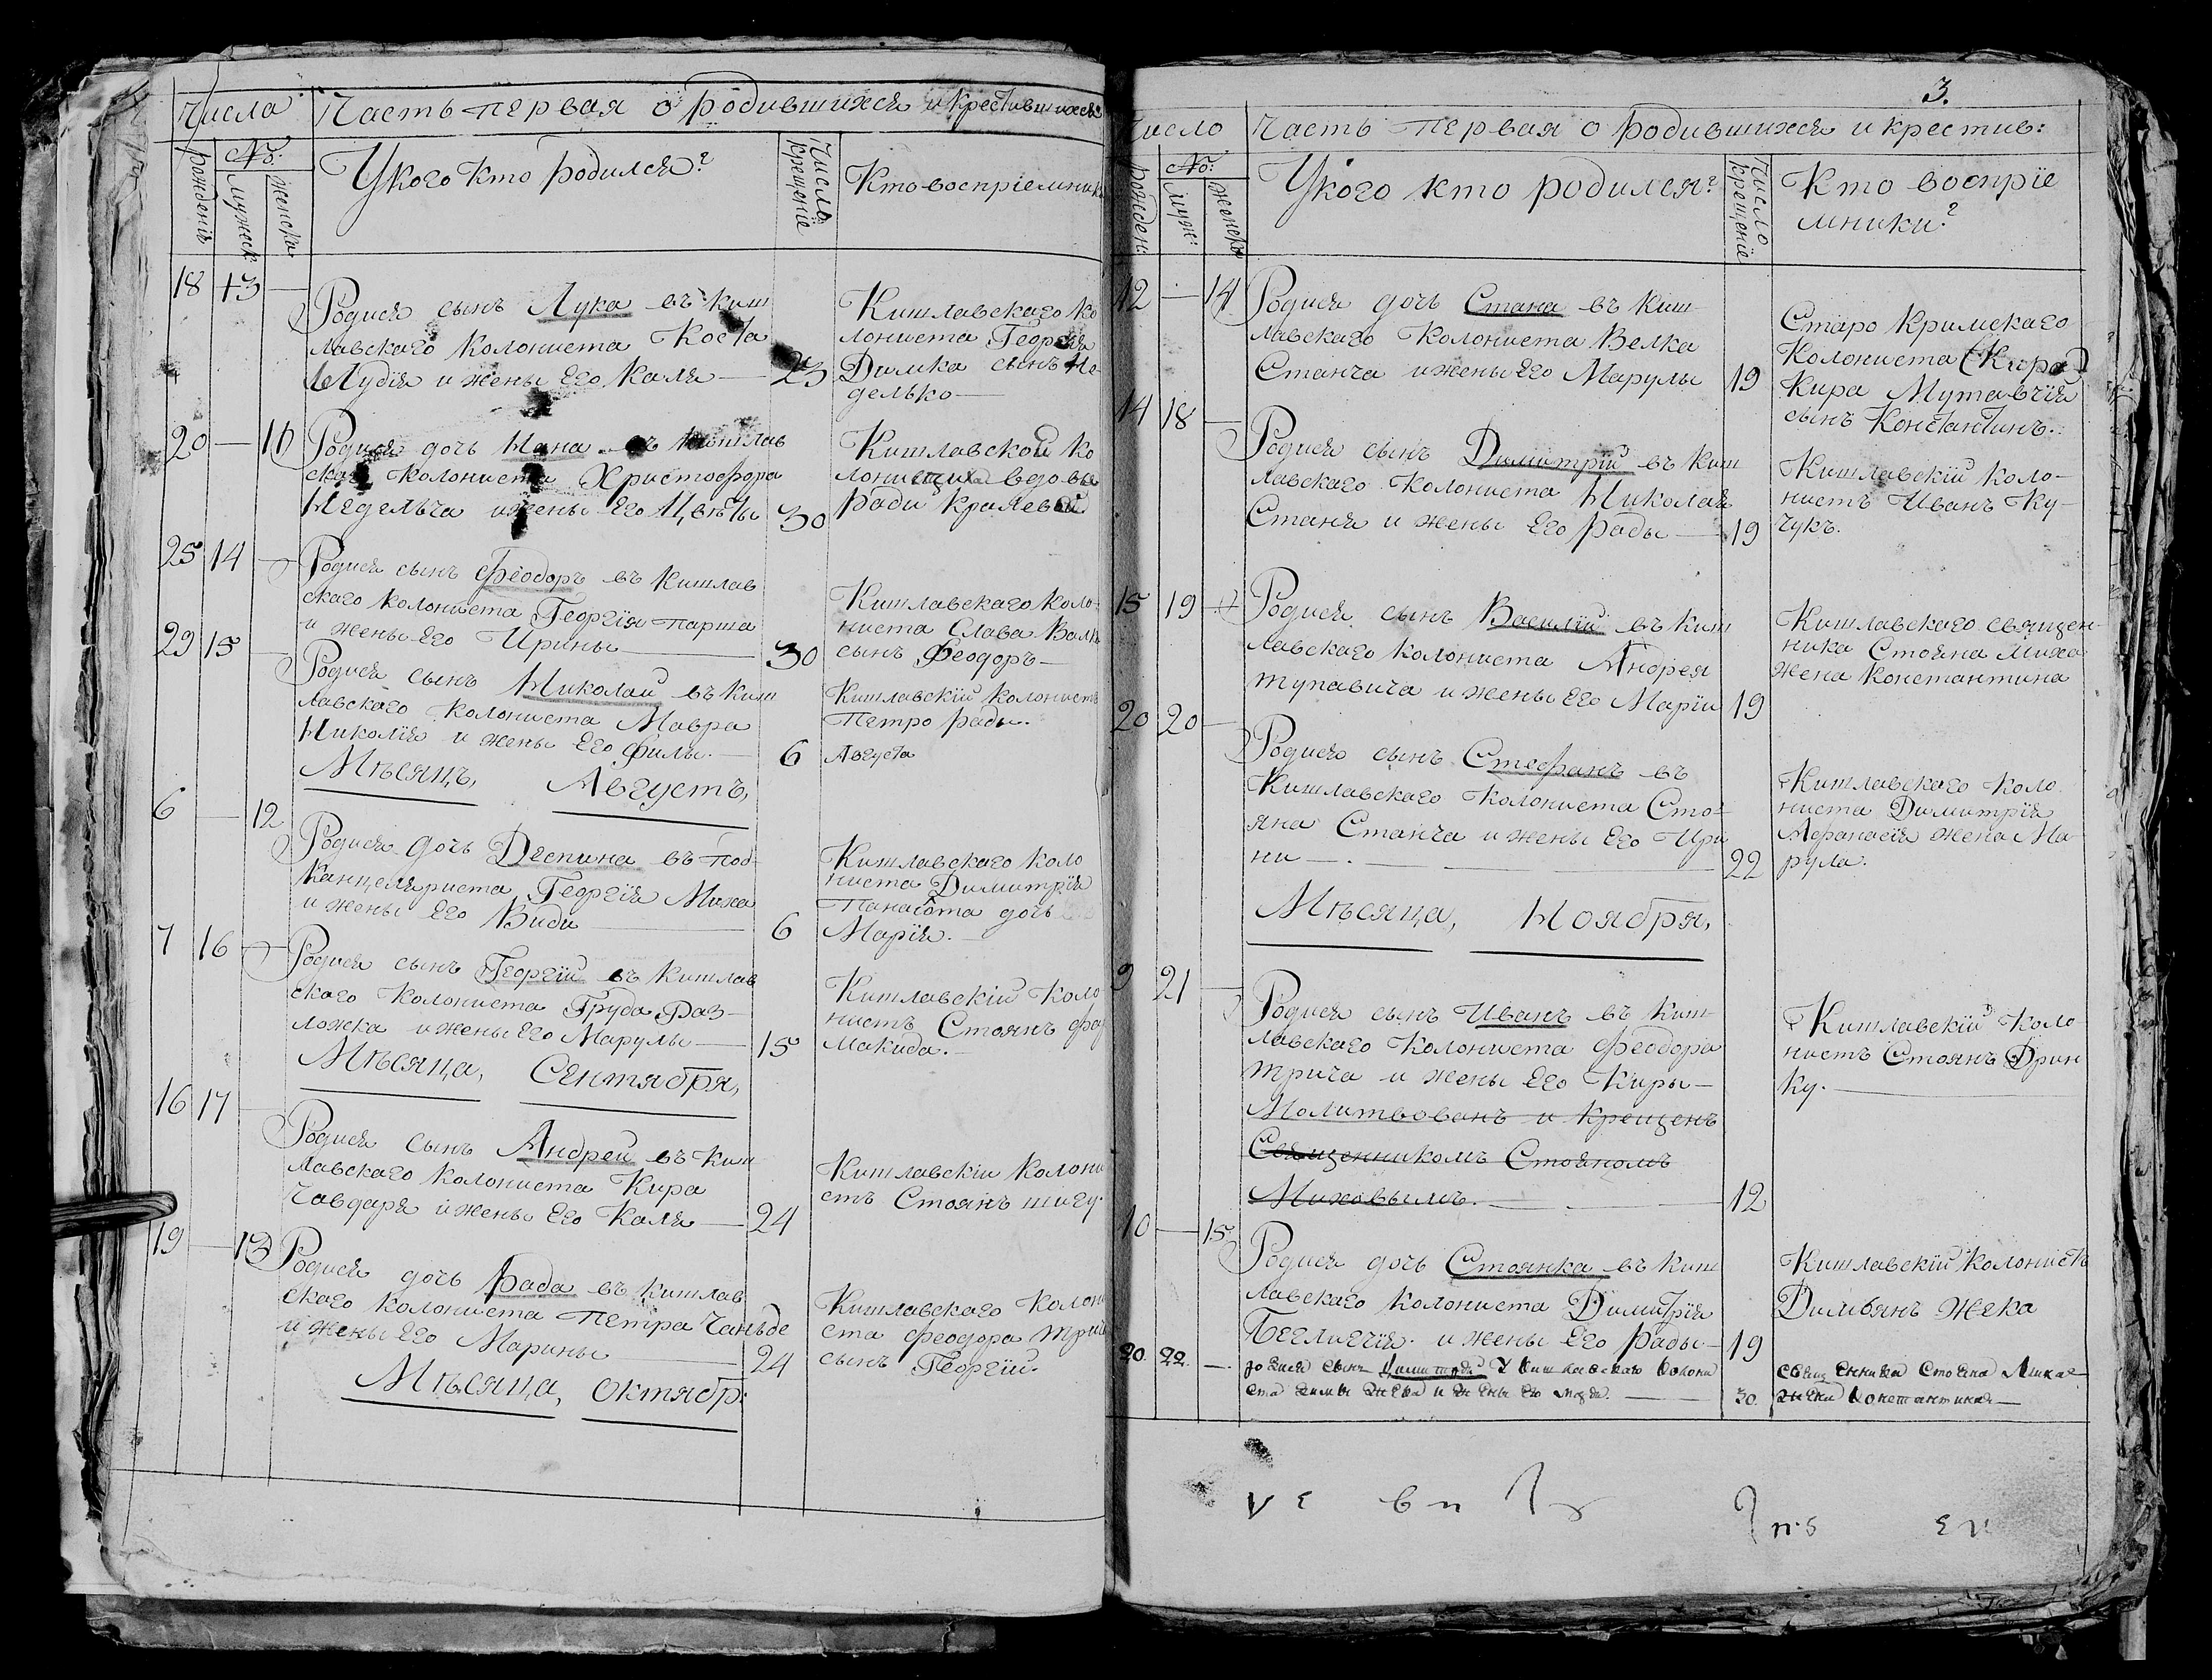 Числа Часть первая о родившихся и крестившихся
рожденія
№:
мужеск
женска
У кого кто родился?
Число крещеніе
Кто воспріемники
18 13 —
Родися сынъ Лука въ Киш
лавскаго колониста Коста
и жены Его Каля — 23
Кишлавскаго ко
лониста Георгія
Димка сынъ Не
делько —
20 — 11
Родися дочь Нана въ Кишлав
скаго колониста Христофора
Недельча и жены Его Цвѣты 30
Кишлавской ко
лонистки вдовы
Ради Кралевой
25 14 —
Родися сынъ Феодоръ въ Кишлав
скаго колониста Георгія Парша
и жены Его Ирины — 30
Кишлавскаго коло
ниста Слава Валк
сынъ Феодоръ —
29 15 —
Родися сынъ Николай въ Киш
лавскаго колониста Мавра
Николія и жены Его Филы. — 6
Кишлавскій колонистъ
Петро Рады.
Августа
Мѣсяцъ, Августъ,
6 — 12
Родися дочь Деспина въ под-
канцеляриста Георгія Миха
и жены Его Види — 6
Кишлавскаго коло
ниста Димитрія
Панаіота дочь
Марія. —
7 16 —
Родися сынъ Георгій въ Кишлав
скаго колониста Груда Раз-
ложка и жены Его Марулы — 15
Кишлавскій коло
нистъ Стоянъ
Макида. —
Мѣсяца, Сентября,
16 17 —
Родися сынъ Андрей въ Киш
лавскаго колониста Кира
Чавдаря и жены Его Каля — 24
Кишлавскій колони
стъ Стоянъ
19 — 13
Родися дочь Рада въ Кишлав
скаго колониста Петра Чаньде
и жены Его Марины — 24
Кишлавскаго колони
ста Феодора Трич
сынъ Георгій.
Мѣсяца, Октябр:
3.
Число Часть первая о родившихся и крестив:
рожден:
№:
муж:
женск
У кого кто родился?
Число крещеніе
Кто воспріе
мники?
12 — 14
Родися дочь Стана въ Киш
лавскаго колониста Велка
Станча и жены Его Марулы 19
Старо Кримскаго
Колониста (Кира)
Кира Мутавчія
сынъ Константинъ.
14 18 —
Родися сынъ Димитрій въ Киш
лавскаго колониста Николая
Станя и жены Его Рады — 19
Кишлавскій коло-
нистъ Иванъ Ку-
чукъ.
15 19 —
Родися сынъ Василій въ Киш
лавскаго колониста Андрея
тупавича и жены Его Маріи 19
Кишлавскаго священ-
ника Стояна Миха
жена Константина
20 20 —
Родися сынъ Стефанъ въ
Кишлавскаго колониста Сто-
яна Станча и жены Его Ири
ни — 22
Кишлавскаго коло
ниста Димитрія
Афанасія жена Ма
рула.
Мѣсяца, Ноября,
9 21 —
Родися сынъ Иванъ въ Киш-
лавскаго колониста Феодора
трича и жены Его Киры —
Молитвованъ и крещенъ
Священникомъ Стояномъ
Миховымъ. — 12
Кишлавскій коло
нистъ Стоянъ Дрин
ку. —
10 — 15
Родися дочь Стоянка въ Киш
лавскаго колониста Димитрія
Беглигчія и жены Его Рады — 19
Кишлавскій колонистъ
Димбянъ Жека
20. 22. —
родися сынъ Димитрій У Кишлавскаго колони
ста и жены его — 30.
священника Стояна Миха
жена Константиная —